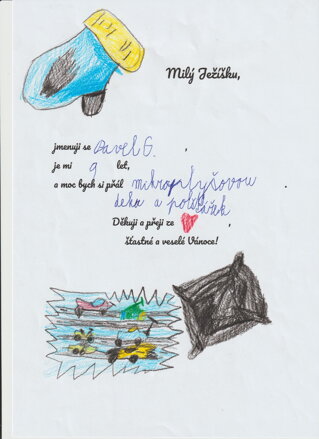 Milý Ježíšku,
jmenuji se Pavel G. ,
je mi 9 let,
a moc bych si přál mikroplyšovou ,
deka a polštářek
Děkuji a přeji ze ,
šťastné a veselé Vánoce!